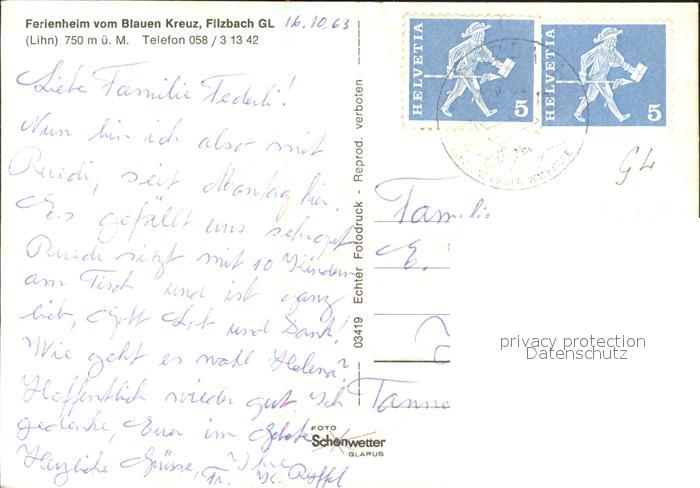 Ferienheim vom Blauen Kreuz, Filzbach GL
(Lihn) 750 m ü. M. Telefon 058 / 3 13 42
16.10.63
Liebe Familie Federli!
Nun bin ich also mit
Ruedi, seit Montag hier.
Es gefällt uns sehr gut
Ruedi sitzt mit 10 Kindern
am Tisch und ist ganz
lieb, Gott Lob und Dank!
Wie geht es wohl Helena?
Hoffentlich wieder gut. Ich
gedenke, Euer im Gebete
Herzliche Grüsse, Ihre
Fr. K.
03419 Echter Fotodruck - Reprod. verboten
FOTO
Schönwetter
GLARUS
HELVETIA 5
HELVETIA 5
GL
Familie
E.
Tanne
privacy protection
Datenschutz